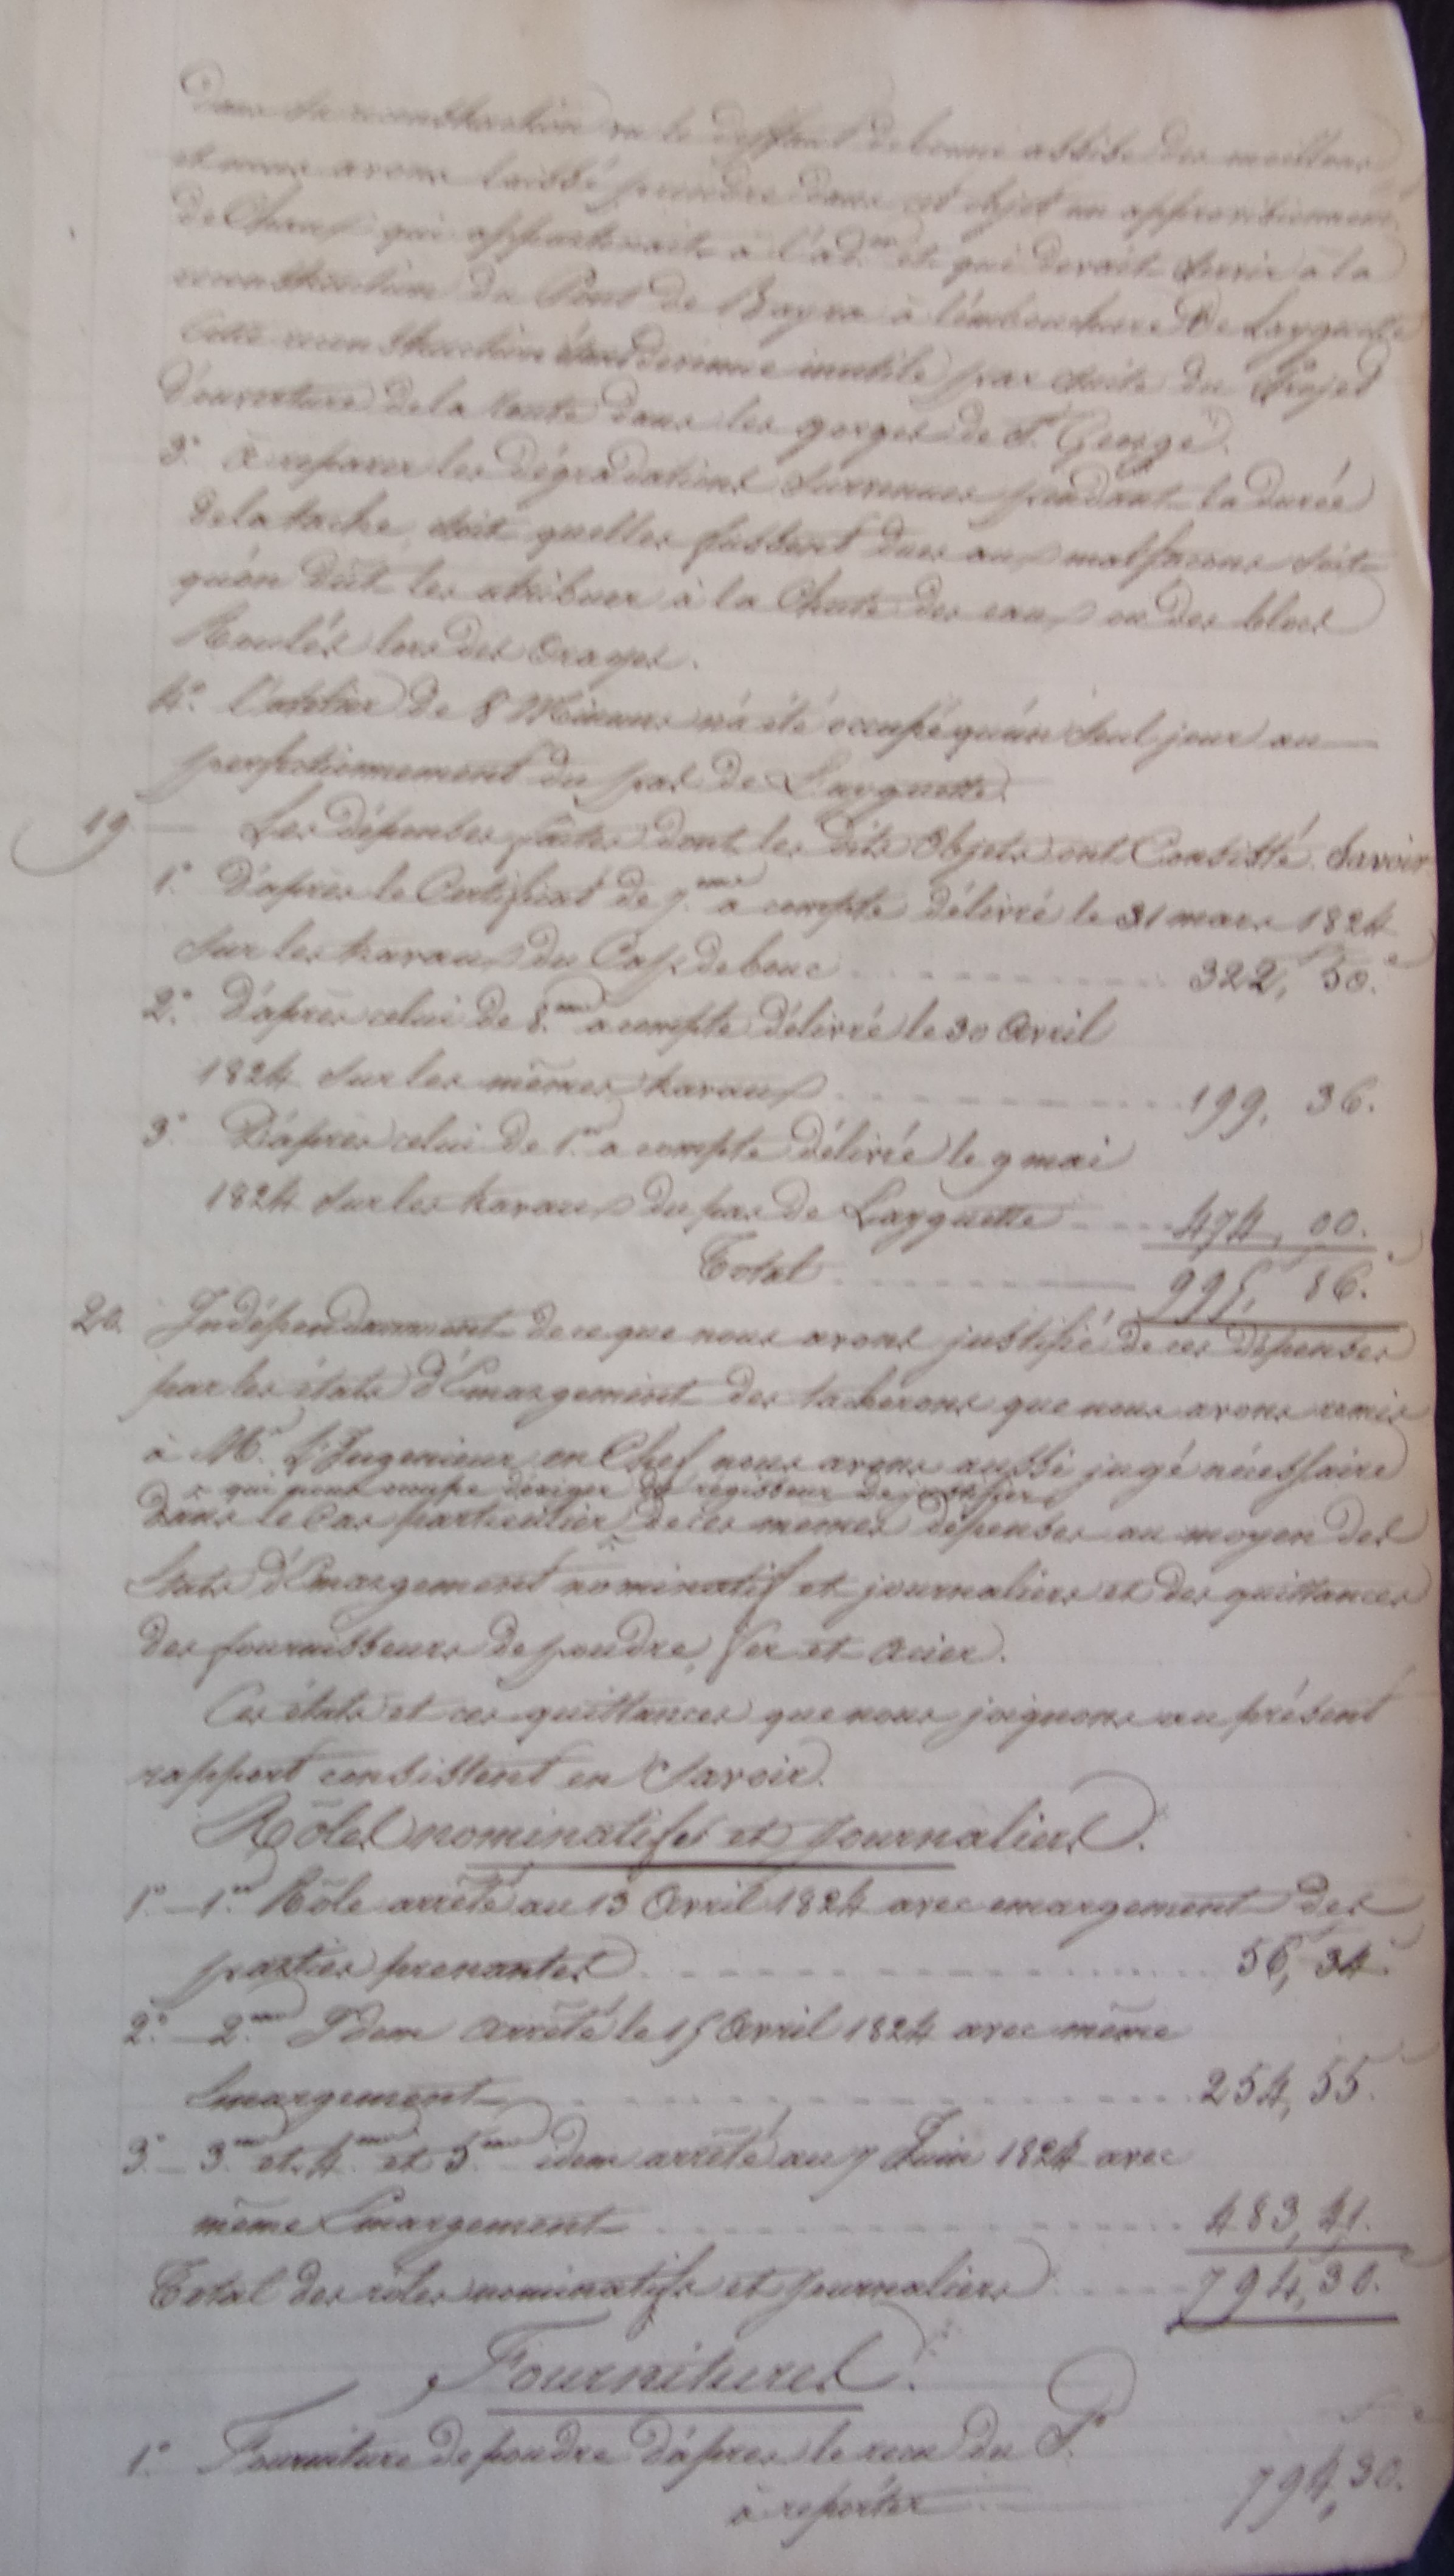 Dans sa reconstruction vu le deffaut de bonne assise des moellons
et nous avons laissé prendre dans cet objet un approvisionnement
de Chaux qui appartenait à l'adon et qui devait servir à la
reconstruction du Pont de Bayra à l'embouchure de Layguette
Cette reconstruction étant devenue inutile par suite du Projet
d'ouverture de la route dans les gorges de St George.
3° à reparer les dégradations survenues pendant la durée
de la tache, soit quelles fussent dues aux malfacons soit
qu'on dût les atribuer à la Chute des eaux ou des blocs
Roulés lors des Orages.
4° l'atelier de 8 Mineurs n'a été occupé qu'un seul jour au
perfectionnement du pas de Layguette.
19 Les dépenses faites dont les dits Objets ont Consisté Savoir
1° D'après le Certificat de 7.me a compte délivré le 31 mars 1824
sur les travaux du Cap de bouc 322, 50.
2° D'après celui de 8.me a compte délivré le 30 Avril
1824 sur les mêmes travaux 199, 36.
3° D'après celui de 1.er a compte délivré le 9 mai
1824 sur les travaux du pas de Layguette 474, 00.
Total 995, 86.
20. Indépendamment de ce que nous avons justifié de ces dépenses
par les états d'Emargement des tacherons que nous avons remis
à Mr L'Ingenieur en Chef nous avons aussi jugé nécessaire
qui nous occupe d'exiger du régisseur de justifier
Dans le Cas particulier de ces memes dépenses au moyen des
Etats d'Emargement nominatif et journaliers et des quittances
des fournisseurs de poudre, fer et acier.
Ces états et ces quittances que nous joignons au présent
rapport consistent en Savoir.
Rôles nominatifs et Journaliers.
1° 1.er Rôle arrêté au 13 Avril 1824 avec emargement des
parties prenantes 56, 34.
2° 2.me Idem arrêté le 15 Avril 1824 avec même
Emargement 254, 55.
3° 3.me et 4.me et 5.me idem arrêté au 7 Juin 1824 avec
même Emargement 483, 41.
Total des rôles nominatifs et Journaliers 794, 30.
Fournitures.
1° Fourniture de poudre d'après le recu du S.r
à reporter 794, 30.